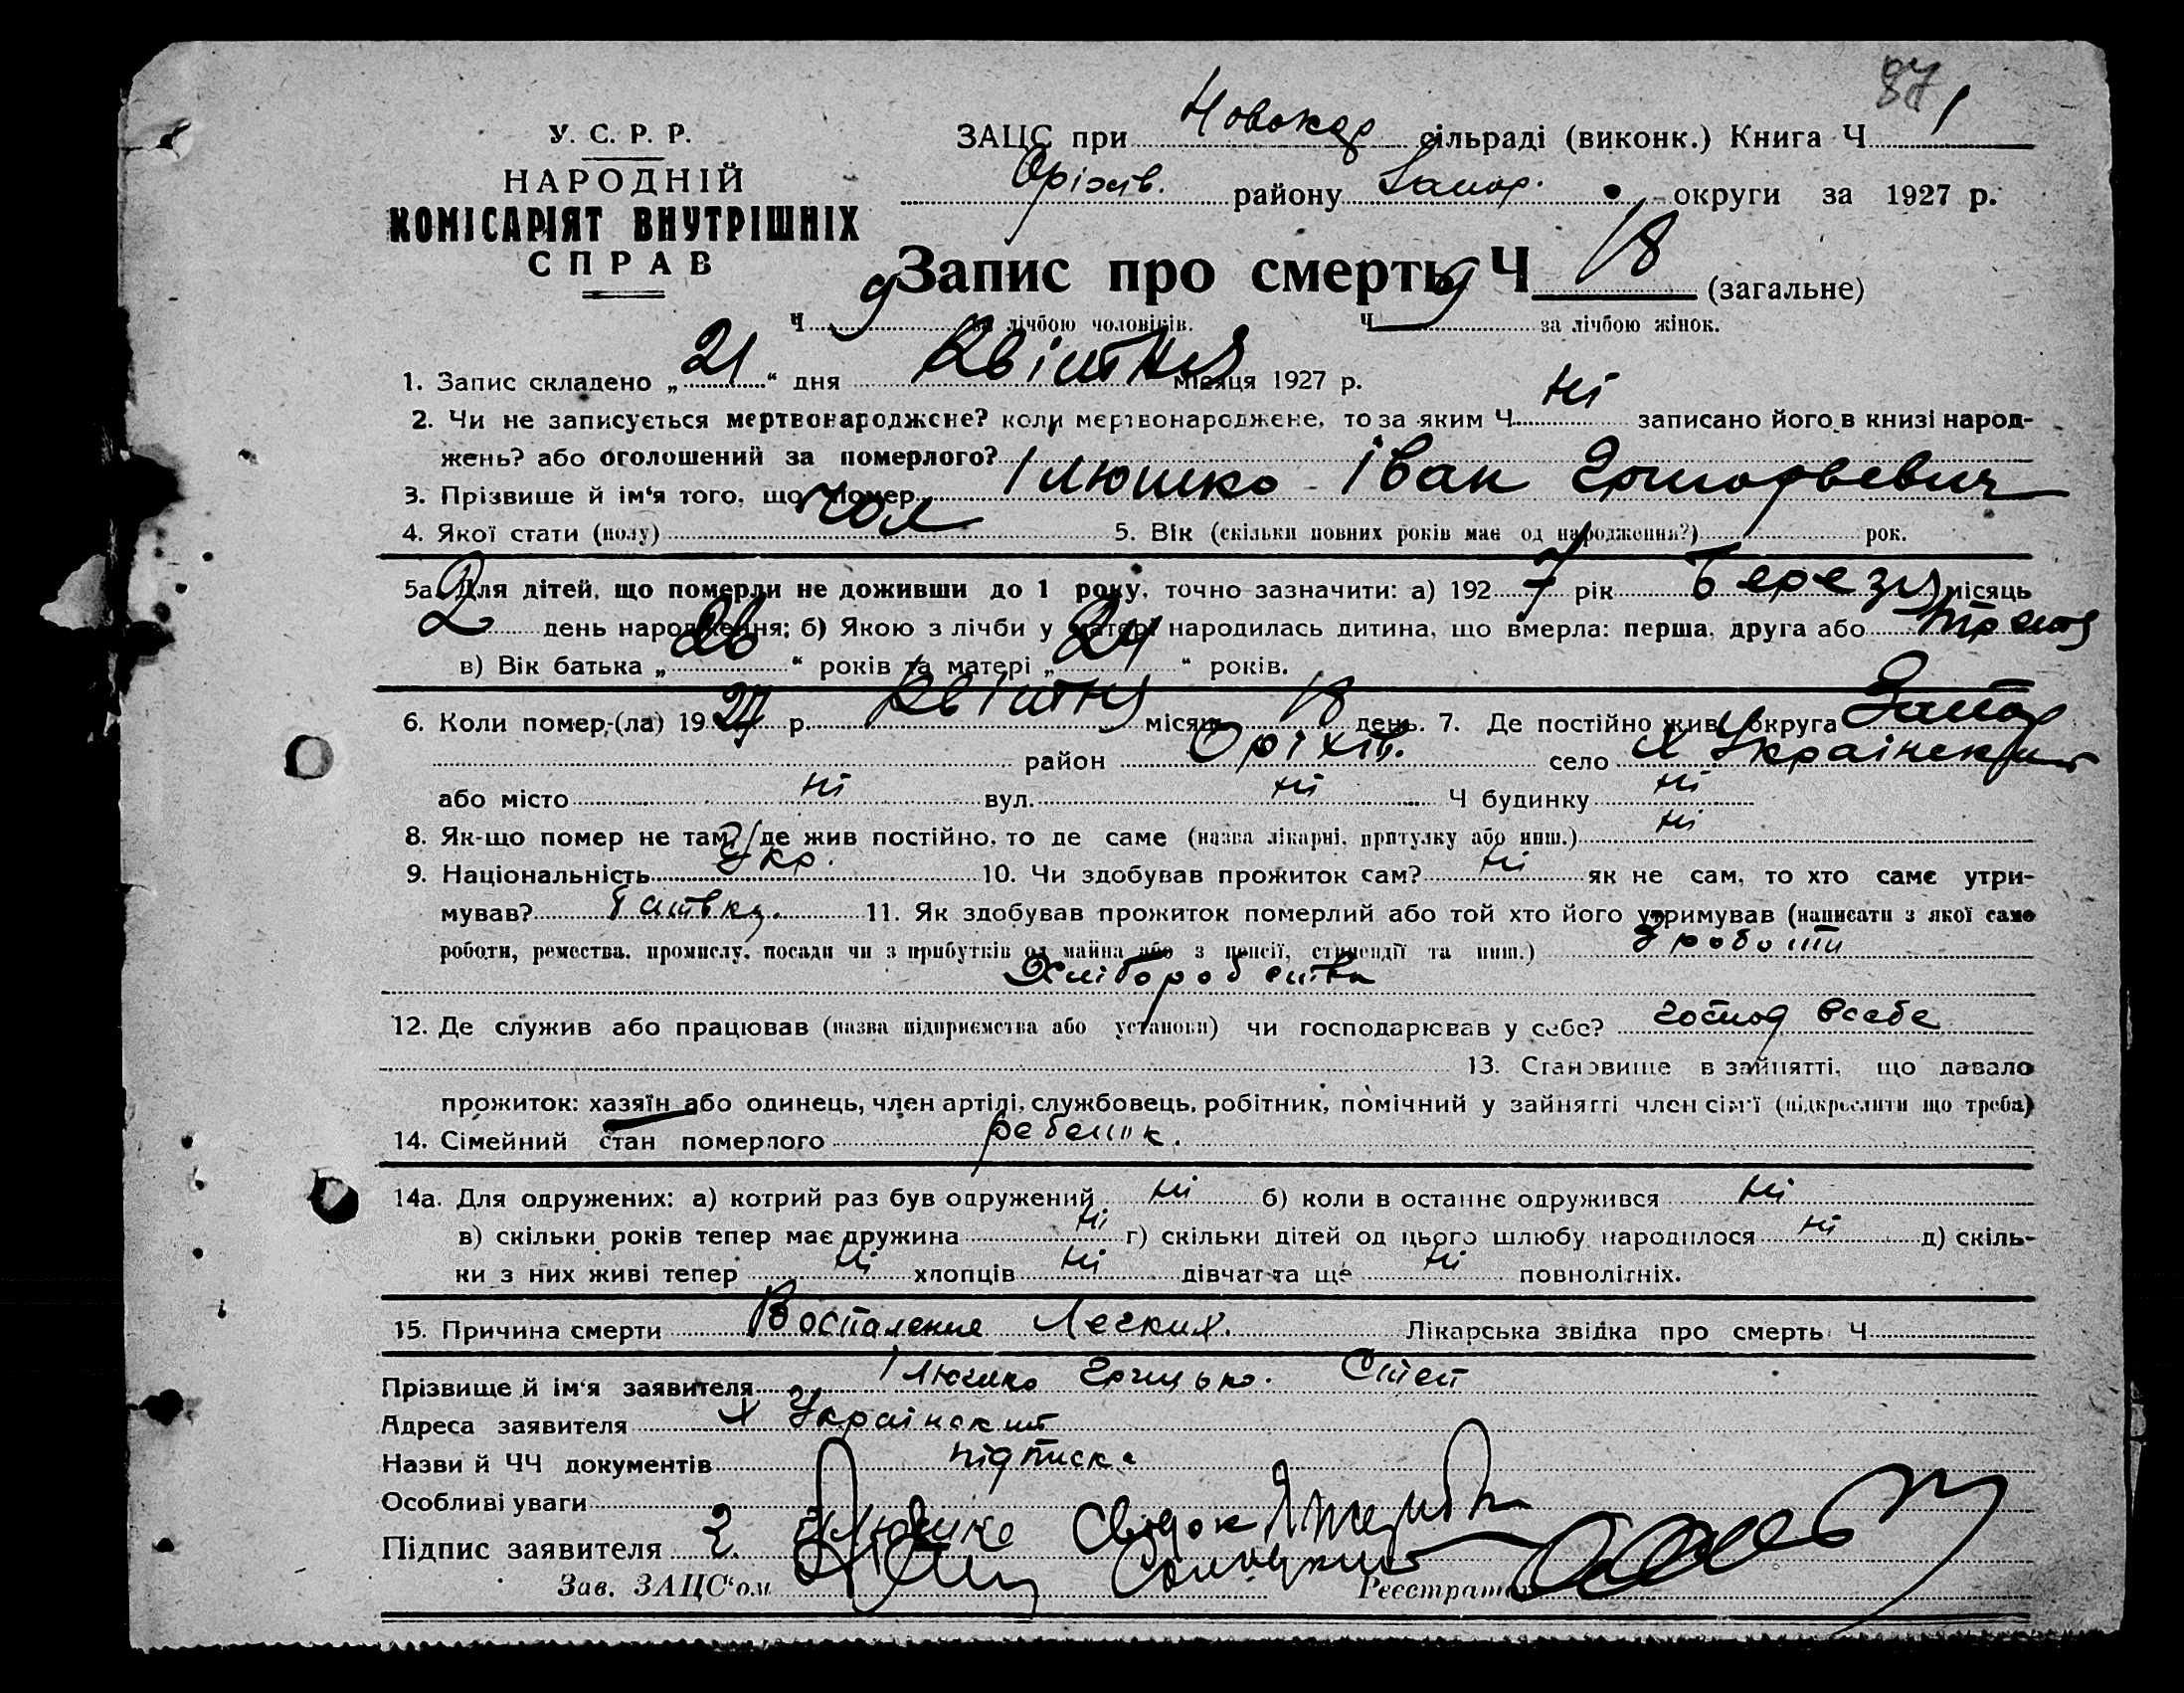 87
У. С. Р. Р.
НАРОДНІЙ
КОМІСАРІЯТ ВНУТРІШНІХ
СПРАВ
ЗАЦС при Новокар сільраді (виконк.) Книга Ч 1
Оріхів. району Запор. округи за 1927 р.
Запис про смерть Ч 18 (загальне)
Ч 9 за лічбою чоловіків. Ч 9 за лічбою жінок.
1. Запис складено „ 21 “ дня Квітня місяця 1927 р.
2. Чи не записується мертвонароджене? коли мертвонароджене, то за яким Ч ні записано його в книзі народ-
жень? або оголошений за померлого?
3. Прізвище й ім‘я того, що помер Ілюшко Іван
4. Якої стати (полу) чол 5. Вік (скільки повних років має од народження?) рок.
5а. Для дітей, що померли не доживши до 1 року, точно зазначити: а) 192 7 рік Березня місяць
2 день народження; б) Якою з лічби у матері народилась дитина, що вмерла: перша, друга або третя
в) Вік батька „ 26 “ років та матері „ 24 “ років.
6. Коли помер,-(ла) 19 27 р. Квітня місяць 18 день. 7. Де постійно жив округа Запор
район Оріхів. село х Українский
або місто ні вул. ні Ч будинку ні
8. Як-що помер не там, де жив постійно, то де саме (назва лікарні, притулку або инш.) ні
9. Національність Укр. 10. Чи здобував прожиток сам? ні як не сам, то хто саме утри-
мував? Батько. 11. Як здобував прожиток померлий або той хто його утримував (написати з якої саме
роботи, ремества, промислу, посади чи з прибутків од майна або з пенсії, стипендії та инш.) З роботи
Хліборобства
12. Де служив або працював (назва підприємства або установи) чи господарював у себе? господ всебе
13. Становище в зайнятті, що давало
прожиток: хазяїн або одинець, член артілі, службовець, робітник, помічний у зайнятті член сім‘ї (підкреслити що треба)
14. Сімейний стан померлого ребенок.
14а. Для одружених: а) котрий раз був одружений ні б) коли в останнє одружився ні
в) скільки років тепер має дружина ні г) скільки дітей од цього шлюбу народилося ні д) скіль-
ки з них живі тепер ні хлопців ні дівчат та ще ні повнолітніх.
15. Причина смерти Воспаление Легких. Лікарська звідка про смерть Ч
Прізвище й ім‘я заявителя Ілюшко Степ
Адреса заявителя х Українский
Назви й ЧЧ документів підписка
Особливі уваги
Підпис заявителя Ілюшко Свідок
Зав. ЗАЦС‘ом Реєстратор